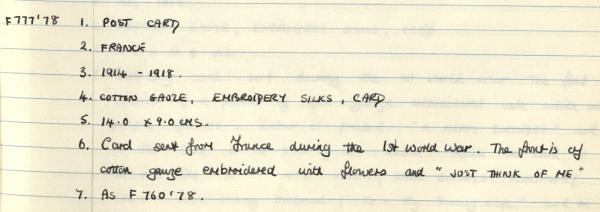 F777'78 1. POST CARD
2. FRANCE
3. 1914 - 1918.
4. COTTON GAUZE, EMBROIDERY SILKS, CARD
5. 14.0 x 9.0 CMS.
6. Card sent from France during the 1st World War. The front is of
cotton gauze embroidered with flowers and "JUST THINK OF ME"
7. As F760'78.